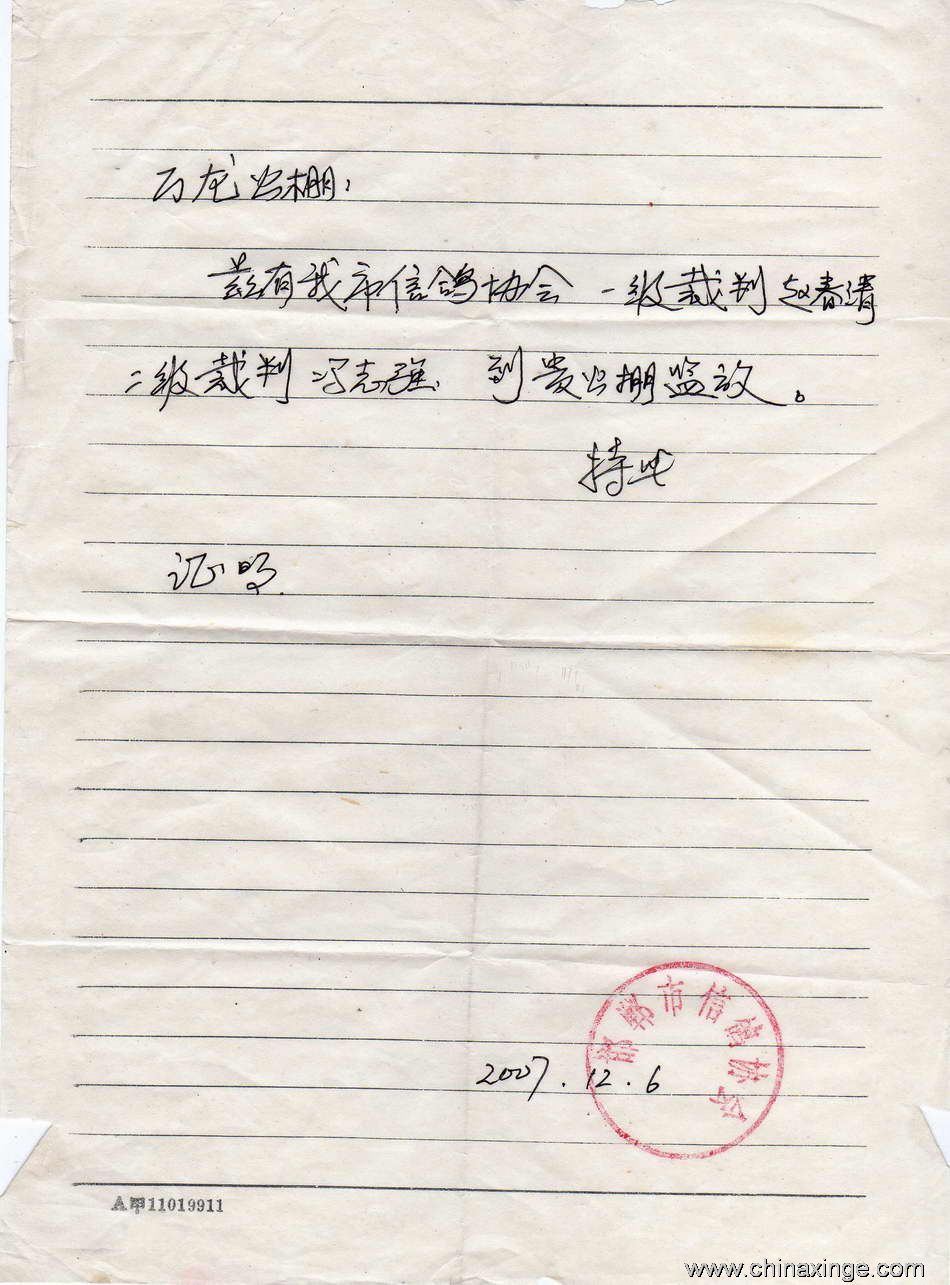 万龙公棚：
兹有我市信鸽协会 一级裁判赵春清
二级裁判冯志强 到贵公棚监放。
特此
证明.
邯郸市信鸽协会
2007.12.6
A甲11019911
www.chinaxinge.com